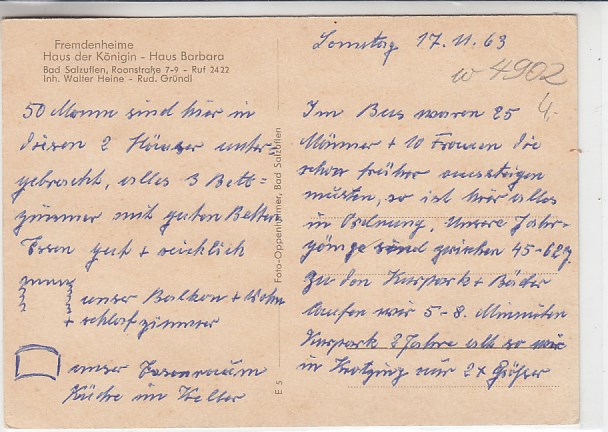 Fremdenheime
Haus der Königin - Haus Barbara
Bad Salzuflen, Roonstraße 7-9 - Ruf 2422
Inh. Walter Heine - Rud. Gründl
50 Mann sind hier in
diesen 2 Häuser unter
gebracht, alles 3 Bett=
zimmer mit guten Betten
Essen gut + reichlich
unser Balkon + Wohn
+ schlafzimmer
unser Essenraum
Küche im Keller
Foto-Oppenheimer, Bad Salzuflen
E 5
Sonntag 17.11.63
w 4902
4,-
Im Bus waren 25
Männer + 10 Frauen die
schon früher aussteigen
mußten, so ist hier alles
in Ordnung, Unsere Jahr-
gänge sind zwischen 45-62J
Zu den Kurpark + Bäder
laufen wir 5-8. Minuten
Kurpark
in nur 2x Größer